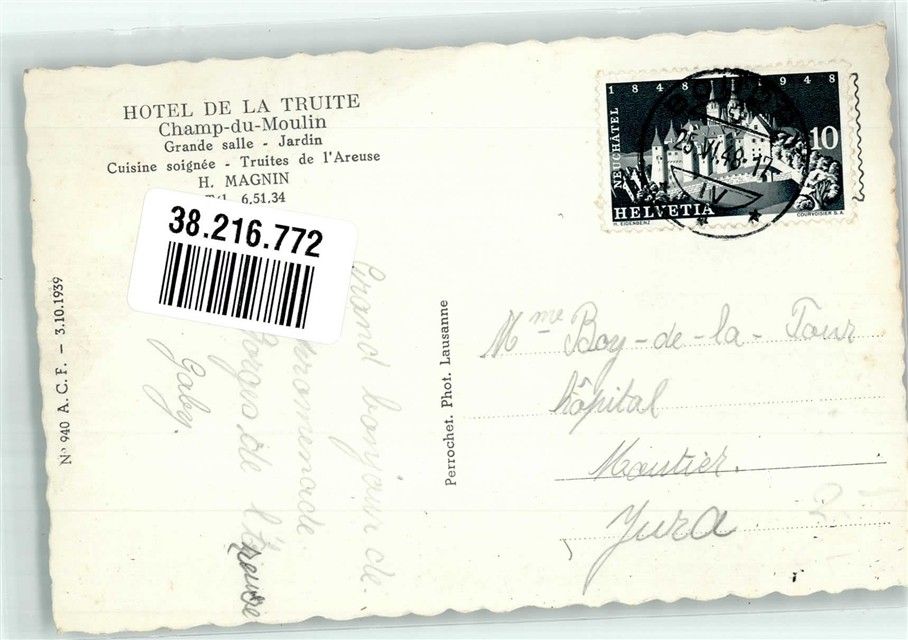 HOTEL DE LA TRUITE
Champ-du-Moulin
Grande salle - Jardin
Cuisine soignée - Truites de l'Areuse
H. MAGNIN
Tél. 6,51,34
38.216.772
Nº 940 A. C. F. — 3.10.1939
Grand bonjour de
promenade
Gorges de l'Areuse
Gaby.
Perrochet. Phot. Lausanne
1848 1948
NEUCHÂTEL
10
HELVETIA
H. EIDENBENZ
COURVOISIER S.A.
BOUDRY
25.VI.48-17
IV
Mme Boy-de-la-Tour
hôpital
Moutier.
Jura